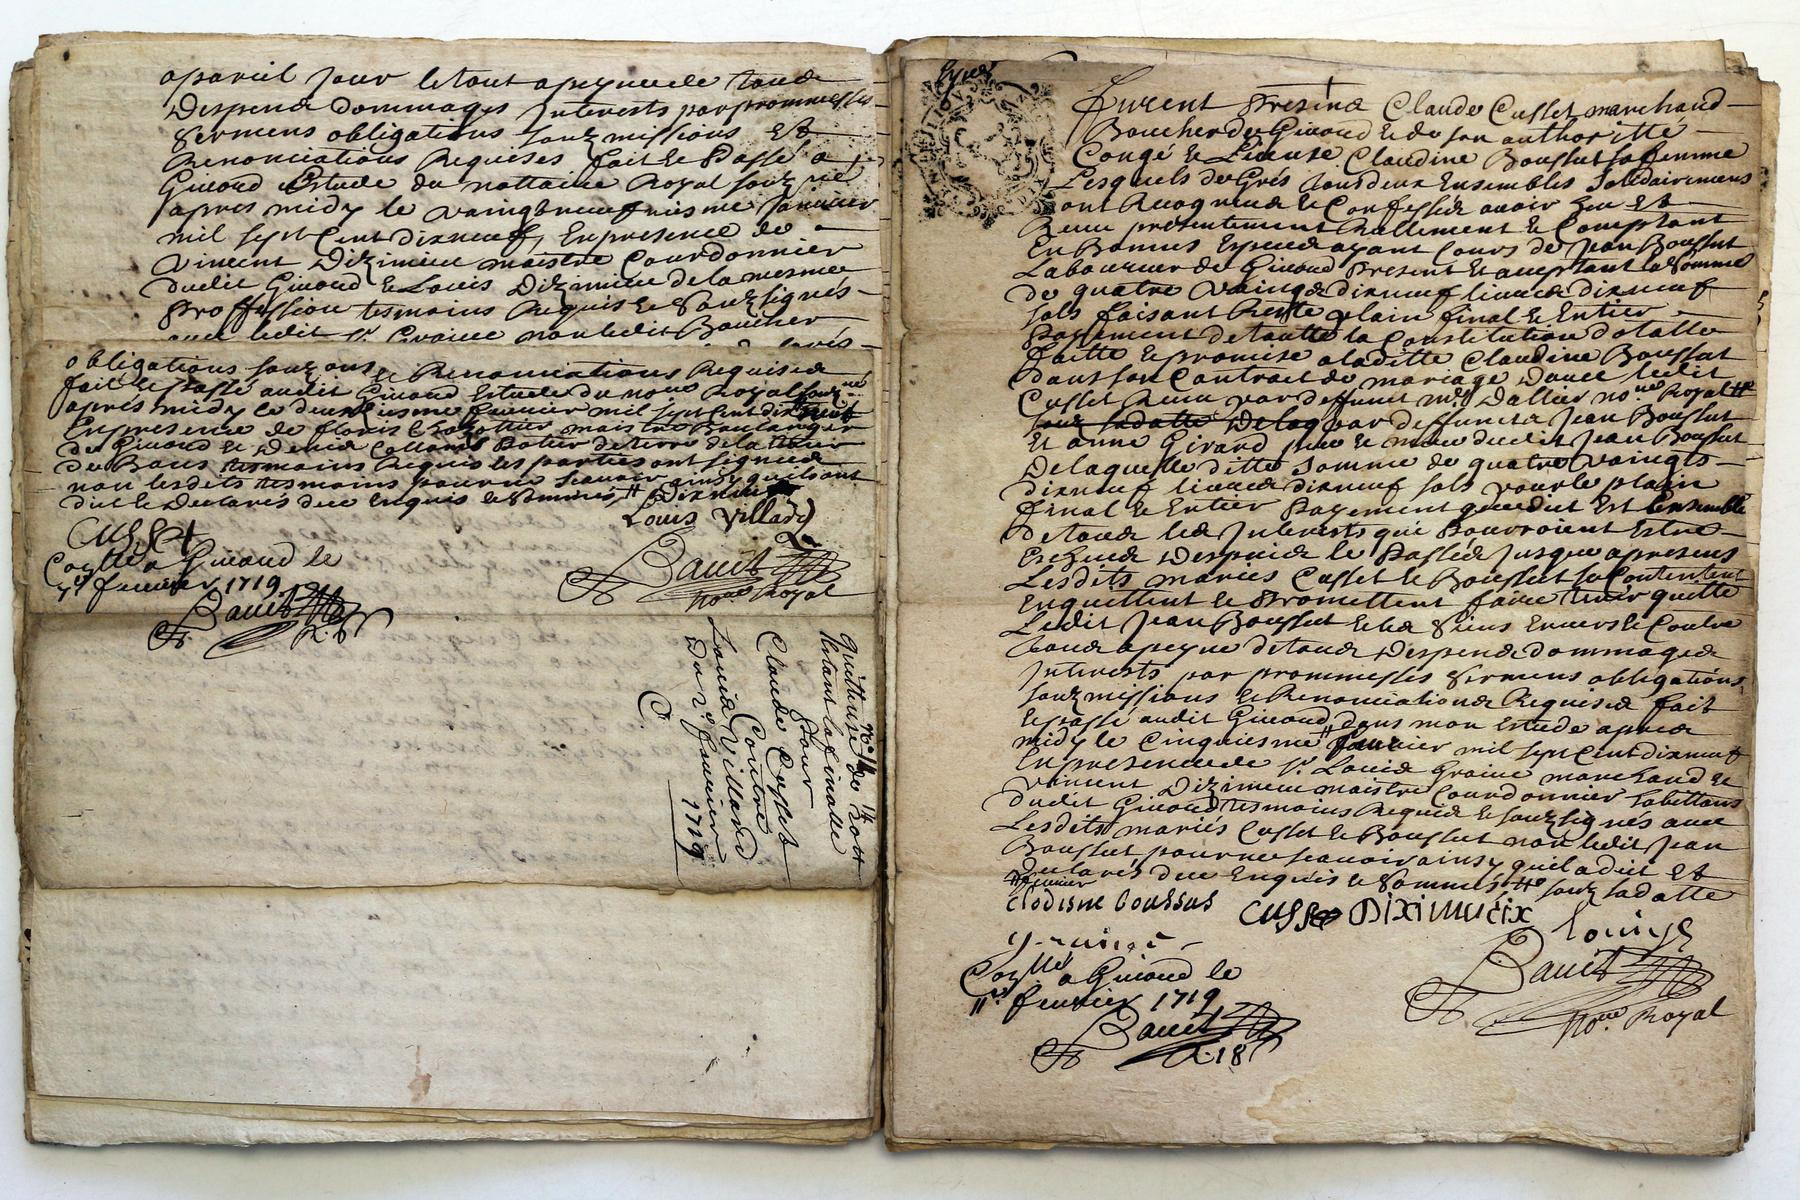 apareil jour le tout a peyne de touts
Despens dommages Interests par promesses
Sermens obligations souzmissions Et
Renonciations Requises fait Et Passé a
Givord Estude du nottaire Royal souzsigné
apres midy le vaingt neufviesme Janvier
mil sept Cent dixneuf, En presence de
Vincent Diximieu maistre Cordonnier
dudit Givord & Louis Diximieu de la mesme
Proffession tesmoins Requis & Souzsignés
avec ledit Sr. Graive non ledit Boucher
obligations souz & Renonciations Requises
fait & passé audit Givord Estude du nore Royal souzné
apres midy le deuxiesme fevrier mil sept Cent dixneuf
En presence de maistre Boulanger
de Givord & Denis Potier de terre
de Bans tesmoins Requis les parties ont signé
non lesdits tesmoins pour ne scavoir ainsy quils ont
dit & Declarés deue Enquis & Sommés
Louis Villard
CUSSET
Baud
nore Royal
Conllé a Givord le
fevrier 1719
Baud
quittance de
Pour
Claude Cusset
Contre
Louis Villard
Du 2e fevrier
1719
furent Presens Claude Cusset marchand
Boucher de Givord & de son authorité
Congé & Licence Claudine Boussut sa femme
Lesquels de Grés tous deux Ensembles Solidairement
ont Recogneus & Confessés avoir heu Et
Receu presentement Reallement & Comptant
En Bonnes Especes ayant Cours de Jean Boussut
Laboureur de Givord Present Et acceptant la Somme
de quatre vaingts dixneuf livres dixneuf
sols faisant Reste plain final & Entier
Payement de toutte la Constitution dotalle
faitte & promise a laditte Claudine Boussut
dans son Contrat de mariage avec ledit
Cusset Receu par deffunct me Dallier nore Royal
par deffuncts Jean Boussut
Et anne Girard pere & mere dudit Jean Boussut
De laquelle ditte Somme de quatre vaingts
dixneuf livres dixneuf sols pour le plain
final & Entier Payement que dict Est Ensemble
de tous les Interests qui Pourroient Estre
Escheus Despuis le Passé Jusque apresens
Lesdits mariés Cusset & Boussut se Contentent
Enquittent & Promettent faire tenir quitte
Ledit Jean Boussut & les Siens Envers & Contre
tous a peyne de tous Despens dommages
Interests par prommesses Sermens obligations
souzmissions & Renonciations Requises fait
& passé audit Givord dans mon Estude apres
midy le Cinquiesme fevrier mil sept Cent dixneuf
En presence de sr. Louis Graive marchand &
Vincent Diximieu maistre Courdonnier habittans
dudit Givord tesmoins Requis & souzsignés avec
Lesdits mariés Cusset & Boussut non ledit Jean
Boussut pour ne scavoir ainsy quil a dit Et
declarés deue Enquis & Sommés souz sadatte
fevrier
clodisne boussus
CUSSet
DIXIMIEIX
Baud
nore Royal
Conllé a Givord le
11e fevrier 1719
Baud
R. 18